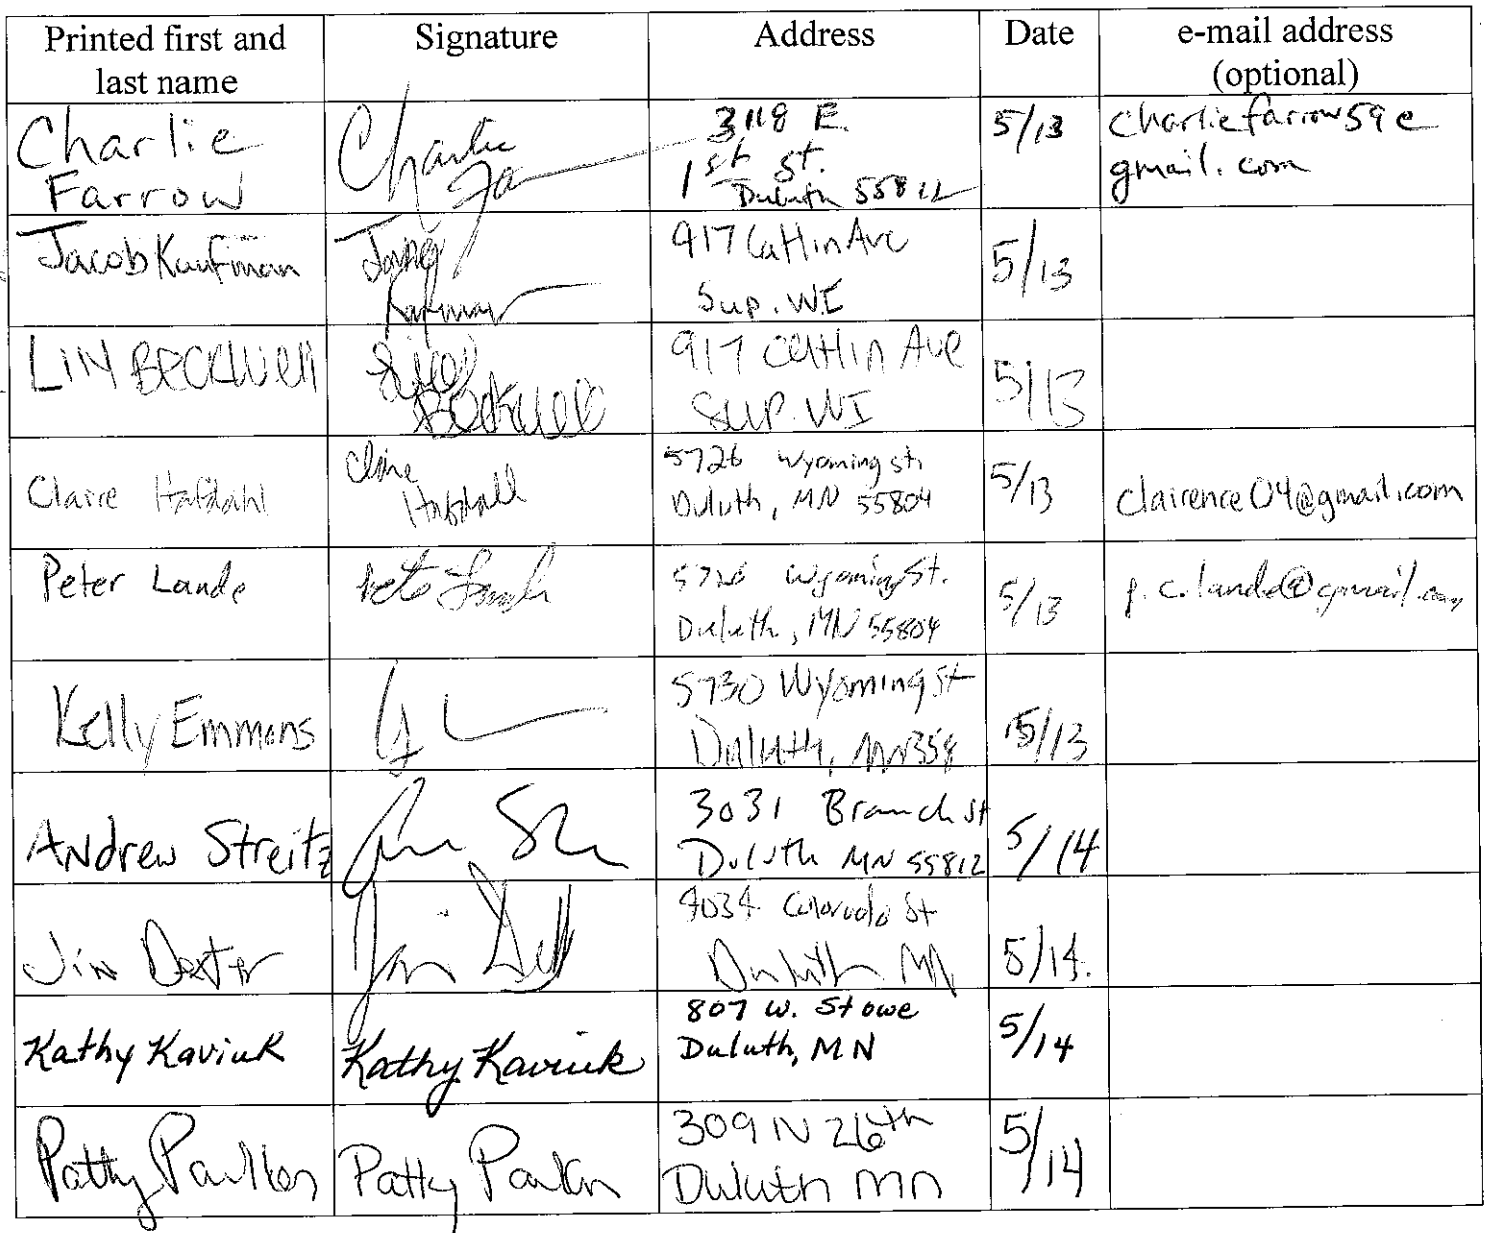 Printed first and last name | Signature | Address | Date | e-mail address (optional)
Charlie Farrow | Charlie Fa | 3118 E. 1st St. Duluth 55812 | 5/13 | Charliefarrow59@gmail.com
Jacob Kaufman | Kaufman | 917 Catlin Ave Sup. WI | 5/13
Lily Beckwell | Lily Beckwell | 917 Catlin Ave Sup. WI | 5/13
Claire Hafdahl | Claire Hafdahl | 5726 Wyoming St. Duluth, MN 55804 | 5/13 | clairence04@gmail.com
Peter Lande | Pete Lande | 5726 Wyoming St. Duluth, MN 55804 | 5/13 | p.c.lande@gmail.com
Kelly Emmons | 5730 Wyoming St Duluth, MN 558 | 5/13
Andrew Streitz | 3031 Branch St Duluth MN 55812 | 5/14
Jim Dexter | Jim | 4034 Colorado St Duluth MN | 5/14.
Kathy Kaviuk | Kathy Kaviuk | 807 W. Stowe Duluth, MN | 5/14
Patty Paulken | Patty | 309 N 26th Duluth MN | 5/14